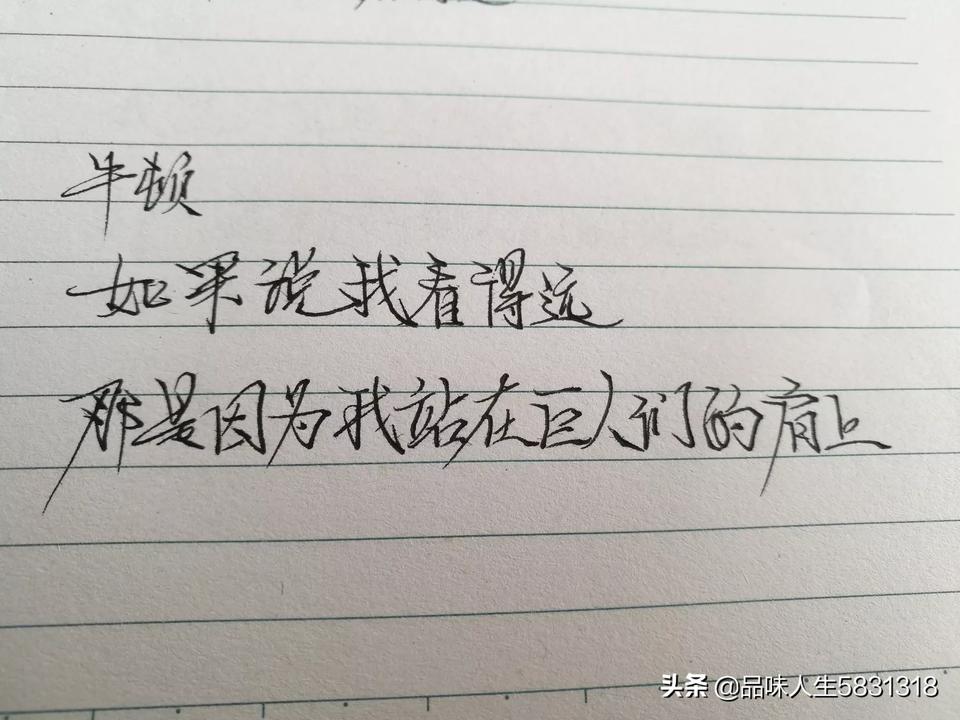 牛顿
如果说我看得远
那是因为我站在巨人们的肩上
头条 @品味人生5831318